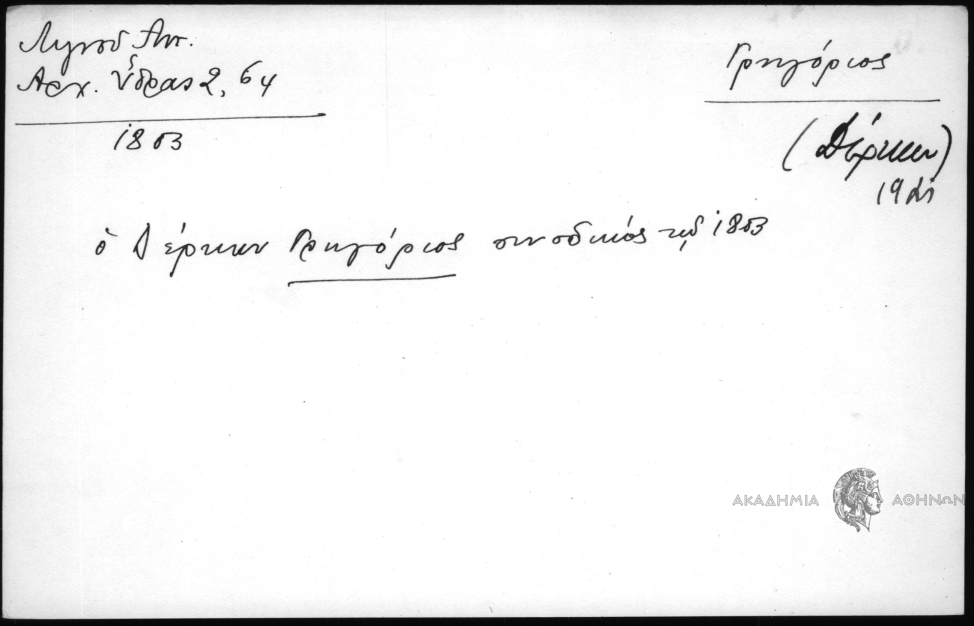 Λιγνοῦ Ἀντ.
Ἀρχ. Ὕδρας 2, 64
1803
Γρηγόριος
(Δέρκων)
ὁ Δέρκων Γρηγόριος συνοδικός τῷ 1803
ΑΚΑΔΗΜΙΑ ΑΘΗΝΩΝ